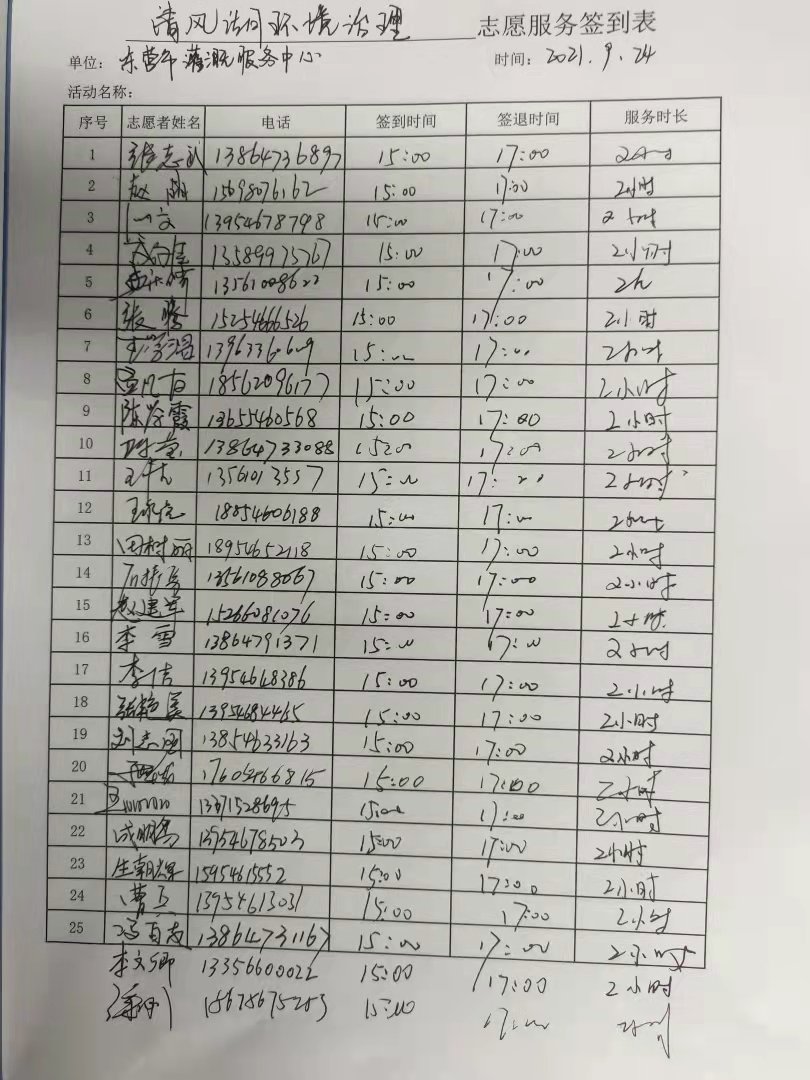 清风 环境治理 志愿服务签到表
单位: 东营市灌溉服务中心 时间: 2021.9.24
活动名称:
序号 志愿者姓名 电话 签到时间 签退时间 服务时长
1 张志武 13864736897 15:00 17:00
2 赵 15698076162 15:00 17:00 2小时
3 13954678798 15:00 17:00 2小时
4 13589975767 15:00 17:00 2小时
5 13561008622 15:00 17:00 2h
6 张腾 15254666526 15:00 17:00 2小时
7 15:00 17:00 2小时
8 18562096177 15:00 17:00 2小时
9 陈冷霞 13655460568 15:00 17:00 2小时
10 13864733088 15:00 17:00 2小时
11 13561013557 15:00 17:00 2小时
12 18854606188 15:00 17:00
13 田树丽 18954652118 15:00 17:00 2小时
14 13561088067 15:00 17:00 2小时
15 赵建军 15266081076 15:00 17:00 2小时
16 李雪 13864791371 15:00 17:00 2小时
17 李洁 13954648386 15:00 17:00 2小时
18 张艳美 13954684465 15:00 17:00 2小时
19 刘志国 13854633163 15:00 17:00 2小时
20 17605466815 15:00 17:00 2小时
21 15:00 17:00 2小时
22 成鹏 13954678503 15:00 17:00 2小时
23 生朝辉 15954615552 15:00 17:00 2小时
24 曹兵 13954613031 15:00 17:00 2小时
25 冯百友 13864731167 15:00 17:00 2小时
李文卿 13356600022 15:00 17:00 2小时
18678675203 15:00 17:00 2小时